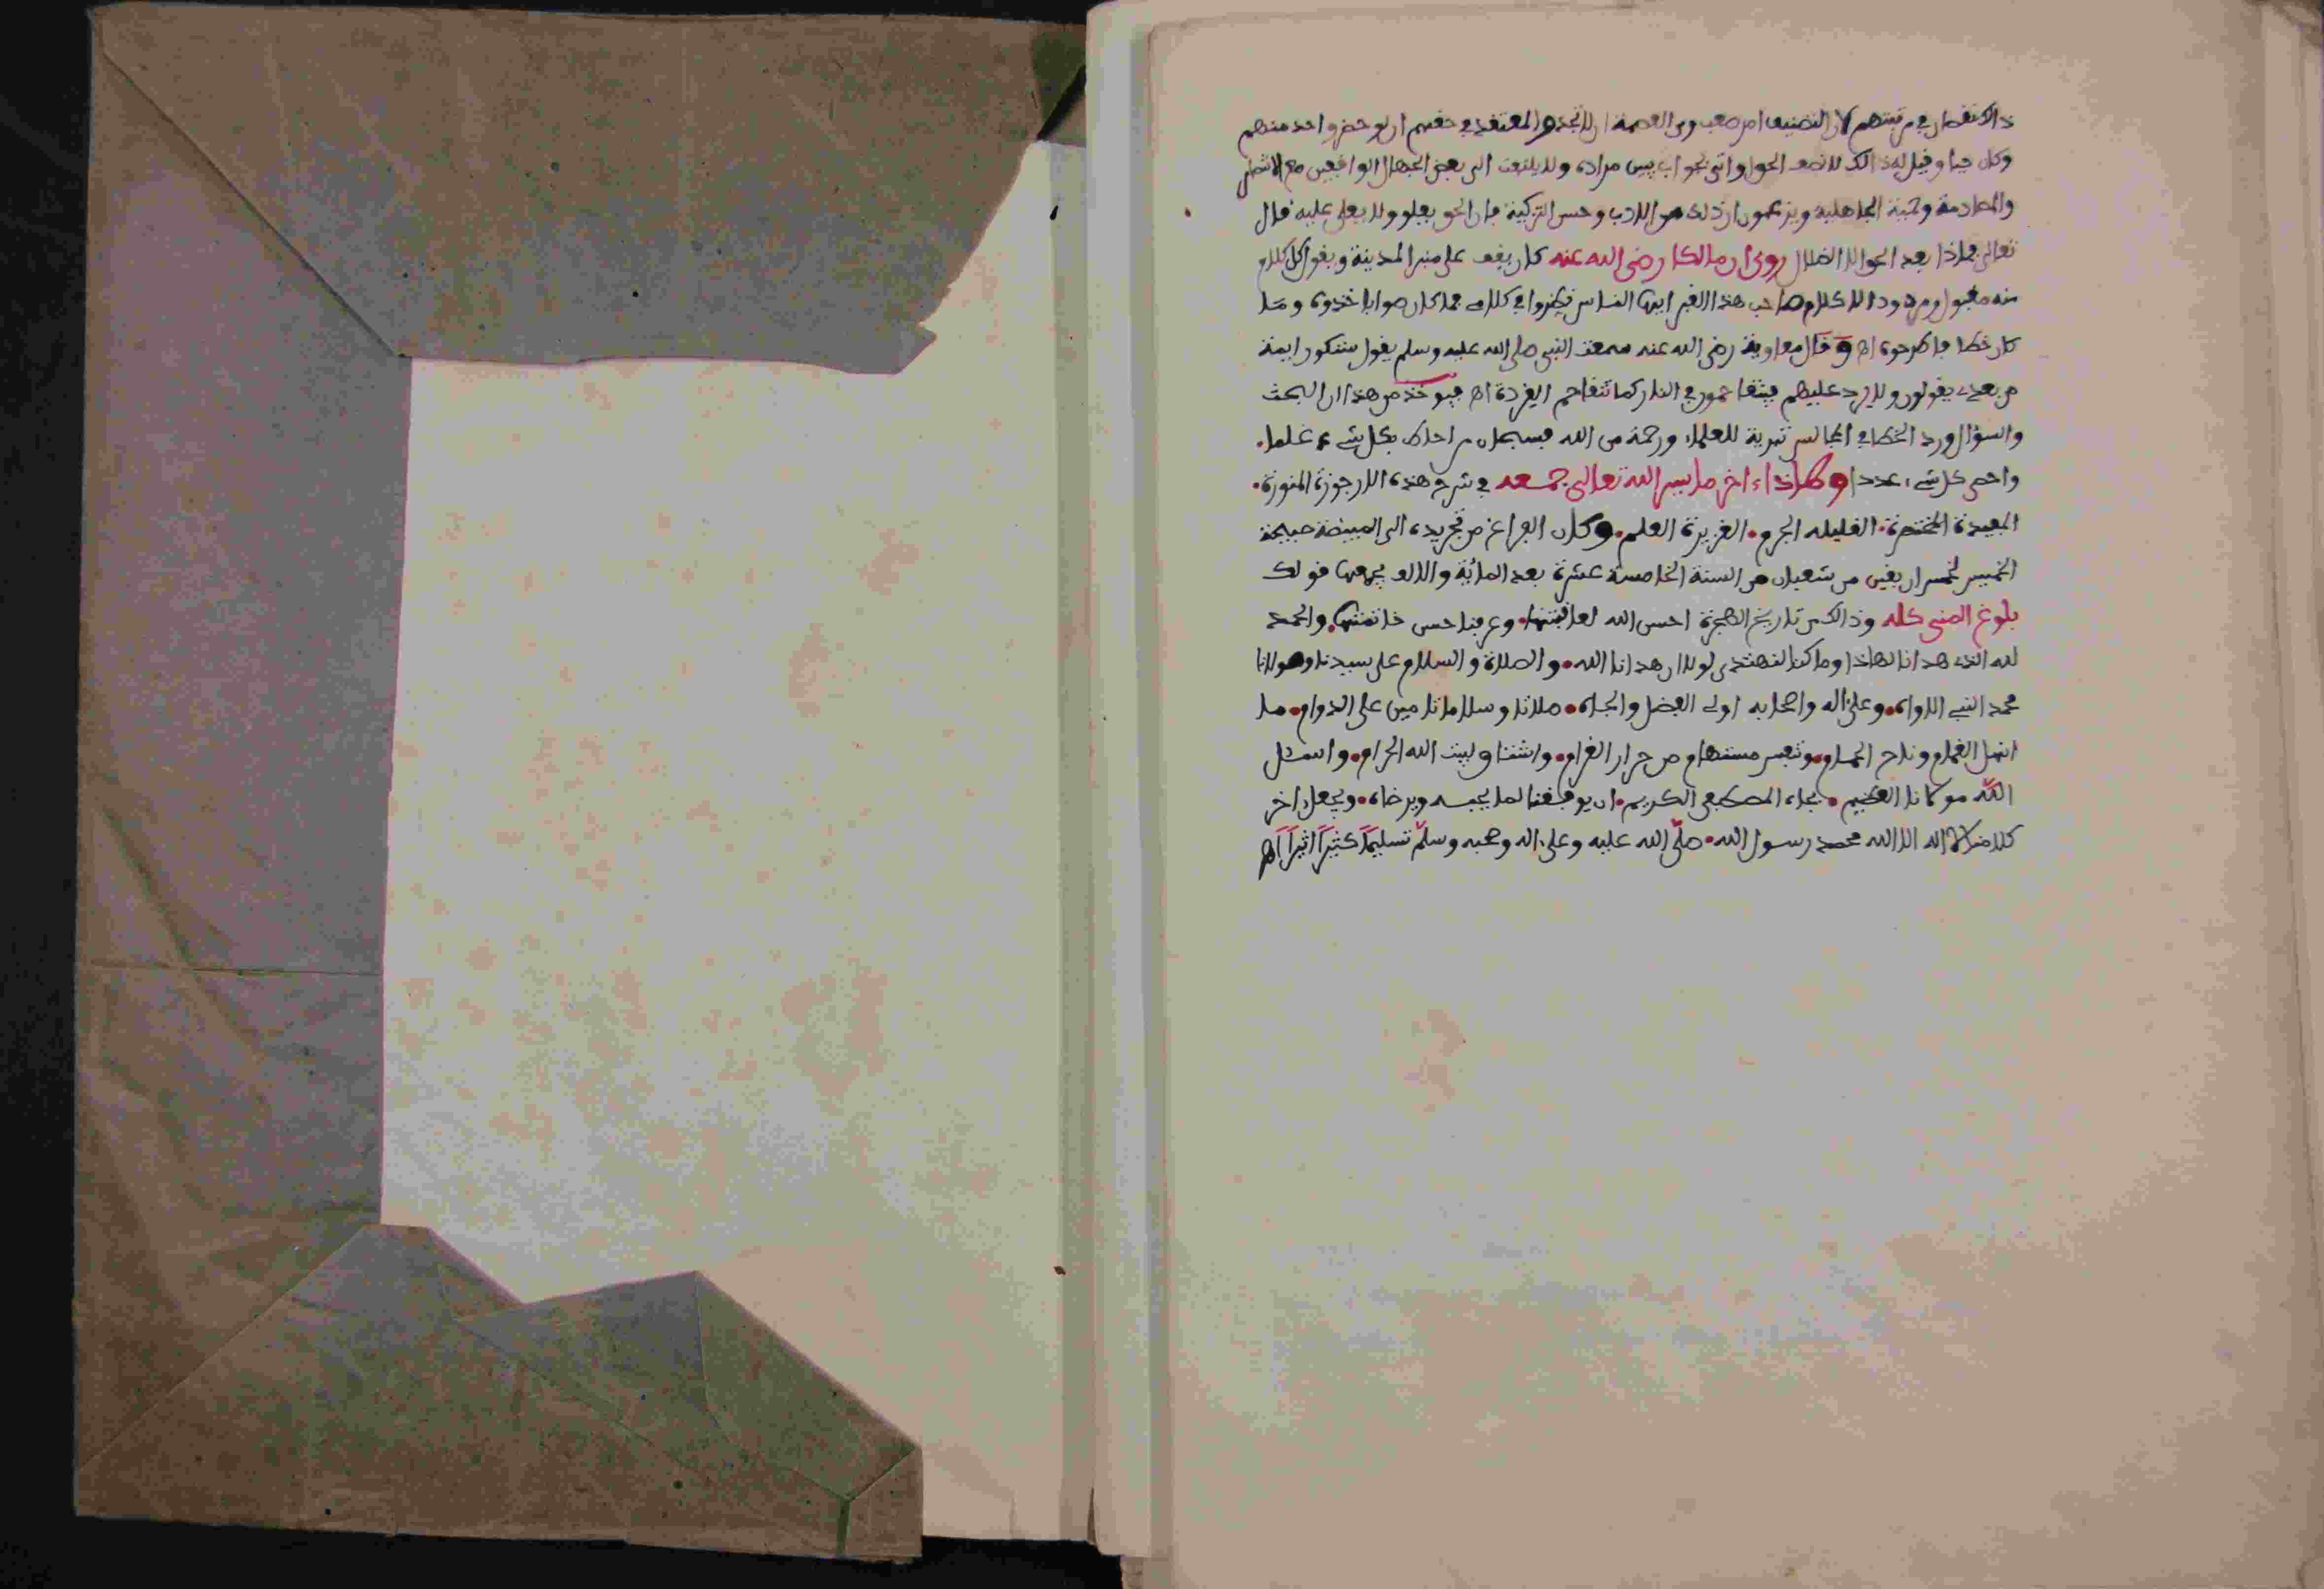 ذالك نقصان في مرتبتهم لان التصنيف امر صعب وفي العصمة المعتقد في حقهم ان لو حضر واحد منهم
وكان حيا وقيل له ذالك لانصف الحق او اتى بجواب يبين مراده ولا يلتفت الى بعض الجهال الواقفين مع
والمصادمة وحمية الجاهلية ويزعمون ان ذلك من الادب وحسن التزكية فان الحق يعلو ولا يعلى عليه قال
تعالى فماذا بعد الحق الا الضلال روى ان مالكا رضى الله عنه كان يقف على منبر المدينة ويقول كل كلام
منه مقبول ومردود الا كلام صاحب هذا القبر ايها الناس انظروا في كلامي فما كان صوابا فخذوه وما
كان خطا فاطرحوه اه وقال معاوية رضى الله عنه سمعت النبي صلى الله عليه وسلم يقول ستكون ايمة
من بعدي يقولون ولا يرد عليهم يتقاحمون في النار كما تتقاحم القردة اه فيوخذ من هذا ان البحث
والسؤال ورد الخطا في المجالس تبرية للعلماء ورحمة من الله فسبحان من احاط بكل شيء علما.
واحصى كل شيء عددا وهاذا ءاخر ما يسر الله تعالى جمعه في شرح هذه الارجوزة المنورة.
المفيدة المختصرة. القليلة الجرم. الغزيرة العلم. وكان الفراغ من تجريده الى المبيضة صبيحة
الخميس لخمس ان بقين من شعبان من السنة الخامسة عشرة بعد المائة والالف يجمعها قولك
بلوغ المنى كله وذالك من تاريخ الهجرة احسن الله لعاقبتها. وعرفنا حسن خاتمتها. والحمد
لله الذي هدانا لهاذا وما كنا لنهتدي لولا ان هدانا الله. والصلاة والسلام على سيدنا ومولانا
محمد النبي الاواه. وعلى اله واصحابه اولى الفضل والجاه. صلاتا وسلاما تامين على الدوام. ما
انهل الغمام وناح الحمام. وتنفس مستهام من حرار الغرام. واشتاق لبيت الله الحرام. واسئل
الله مولانا العظيم. بجاه المصطفى الكريم. ان يوفقنا لما يحبه ويرضاه. ويجعل اخر
كلامنا لا اله الا الله محمد رسول الله. صلى الله عليه وعلى اله وصحبه وسلم تسليما كثيرا اثيرا اه